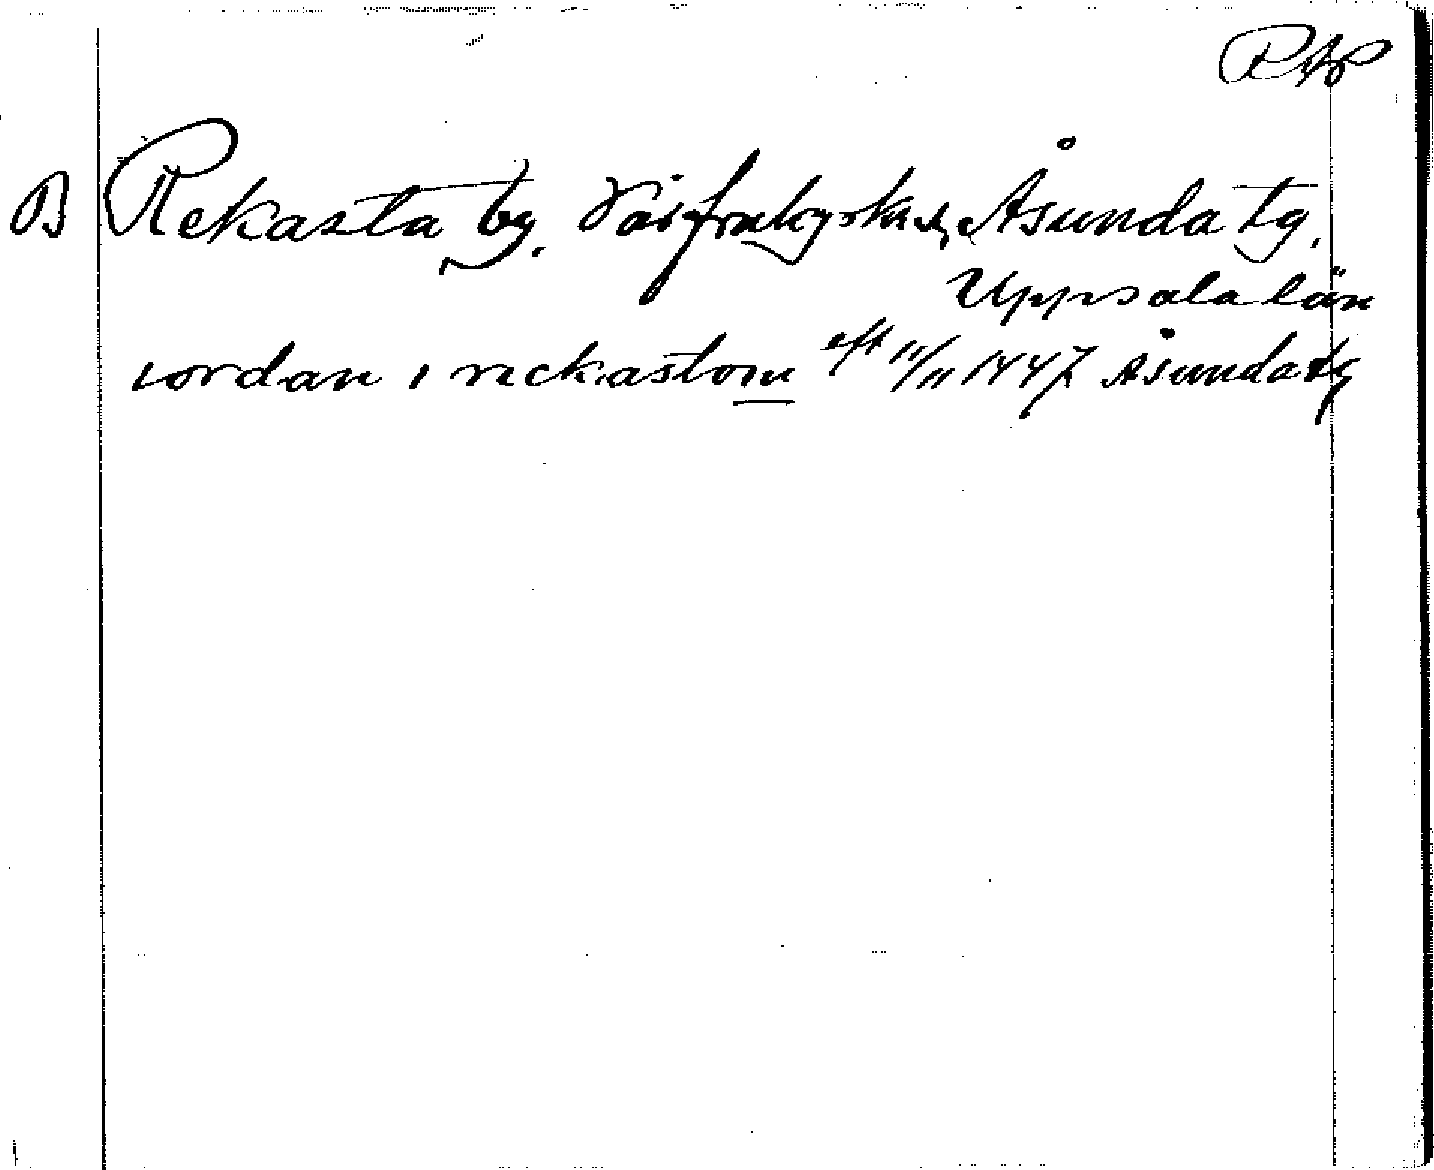 RAP
B Rekasta by. Vårfrukyrka sn, Åsunda tg,
Uppsala län
iordan i reckastom eft 11/11 1447 Åsunda tg